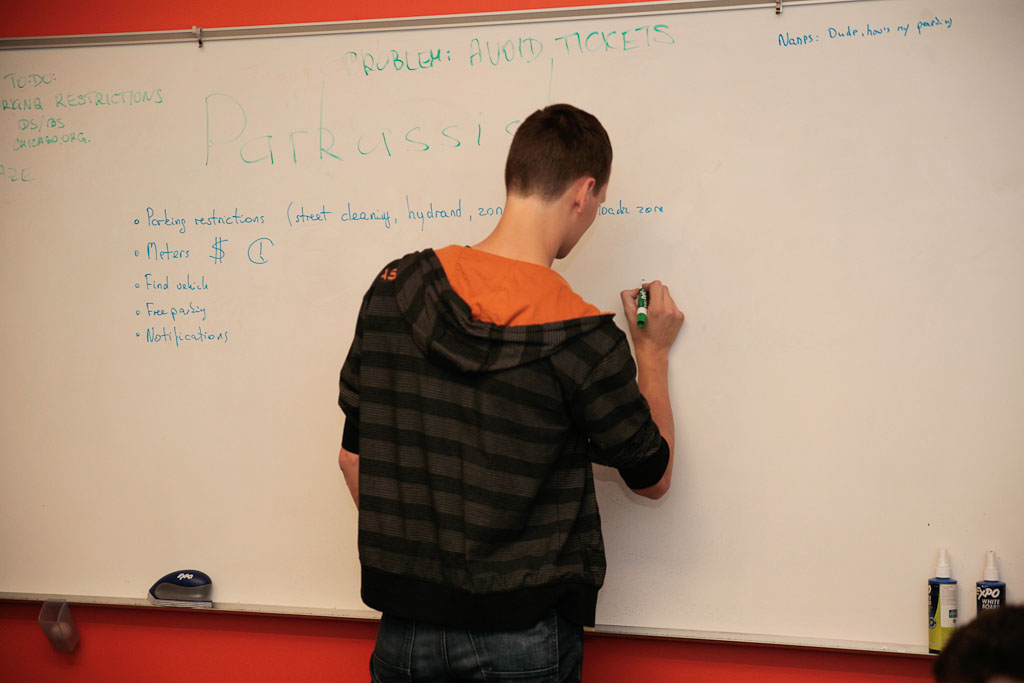 PROBLEM: AVOID TICKETS
Names: Dude, how's my parking
TO-DO:
RKING RESTRICTIONS
DS/BS
CHICAGO.ORG.
AZE
Parkassis
• Parking restrictions (street cleaning, hydrand, zon loadz zone
• Meters $
• Find vehicle
• Free parking
• Notifications
AS
EXPO
EXPO
WHITE
BOARD